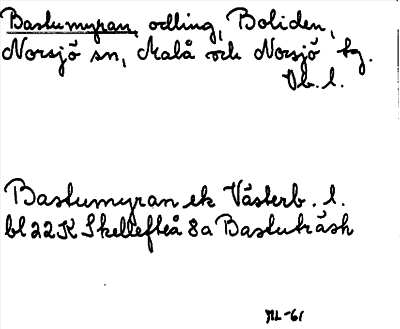 Bastumyran, odling, Boliden,
Norsjö sn, Malå och Norsjö tg.
Vb. l.
Bastumyran ek Västerb. l.
bl 22 K Skellefteå 8a Bastuträsk
ML-61